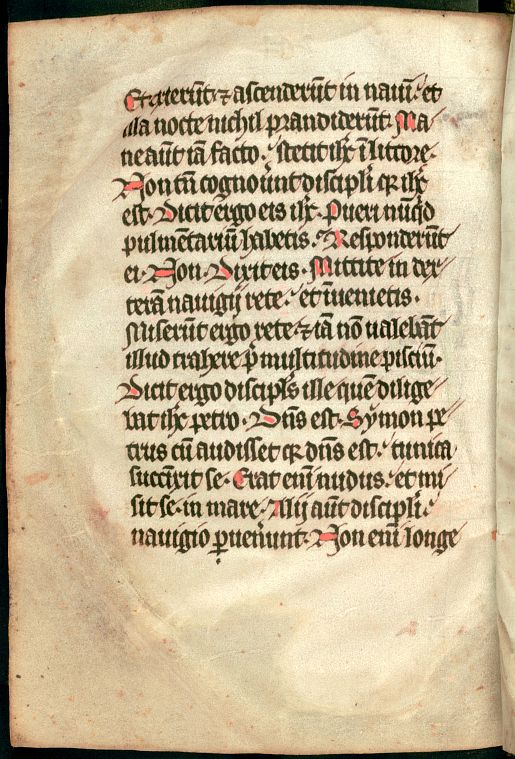 Et exierūt ⁊ ascenderūt in nauī. et
illa nocte nichil prandiderūt. Ma//
ne aūt iā facto. stetit ihc̄ ī littore.
Non tn̄ cognoūunt discipli qꝛ ihc̄
est. Dicit ergo eis ihc̄. Pueri nūqͥd
pulmētariū habetis. Responderūt
ei. Non. Dixit eis. Mittite in dex//
terā nauigij rete. et īuenietis.
Miserūt ergo rete. ⁊ iā nō ualebāt
illud trahere p̄ multitudine pisciū.
Dicit ergo discipl̄s ille quē dilige//
bat ihc̄ petro. Dn̄s est. Symon pe//
trus cū audisset qꝛ dn̄s est. tunica
succīxit se. Erat enī nudus. et mi//
sit se in mare. Alij aūt discipl̄i.
nauigio ꝑuen̄unt. Non enī longe